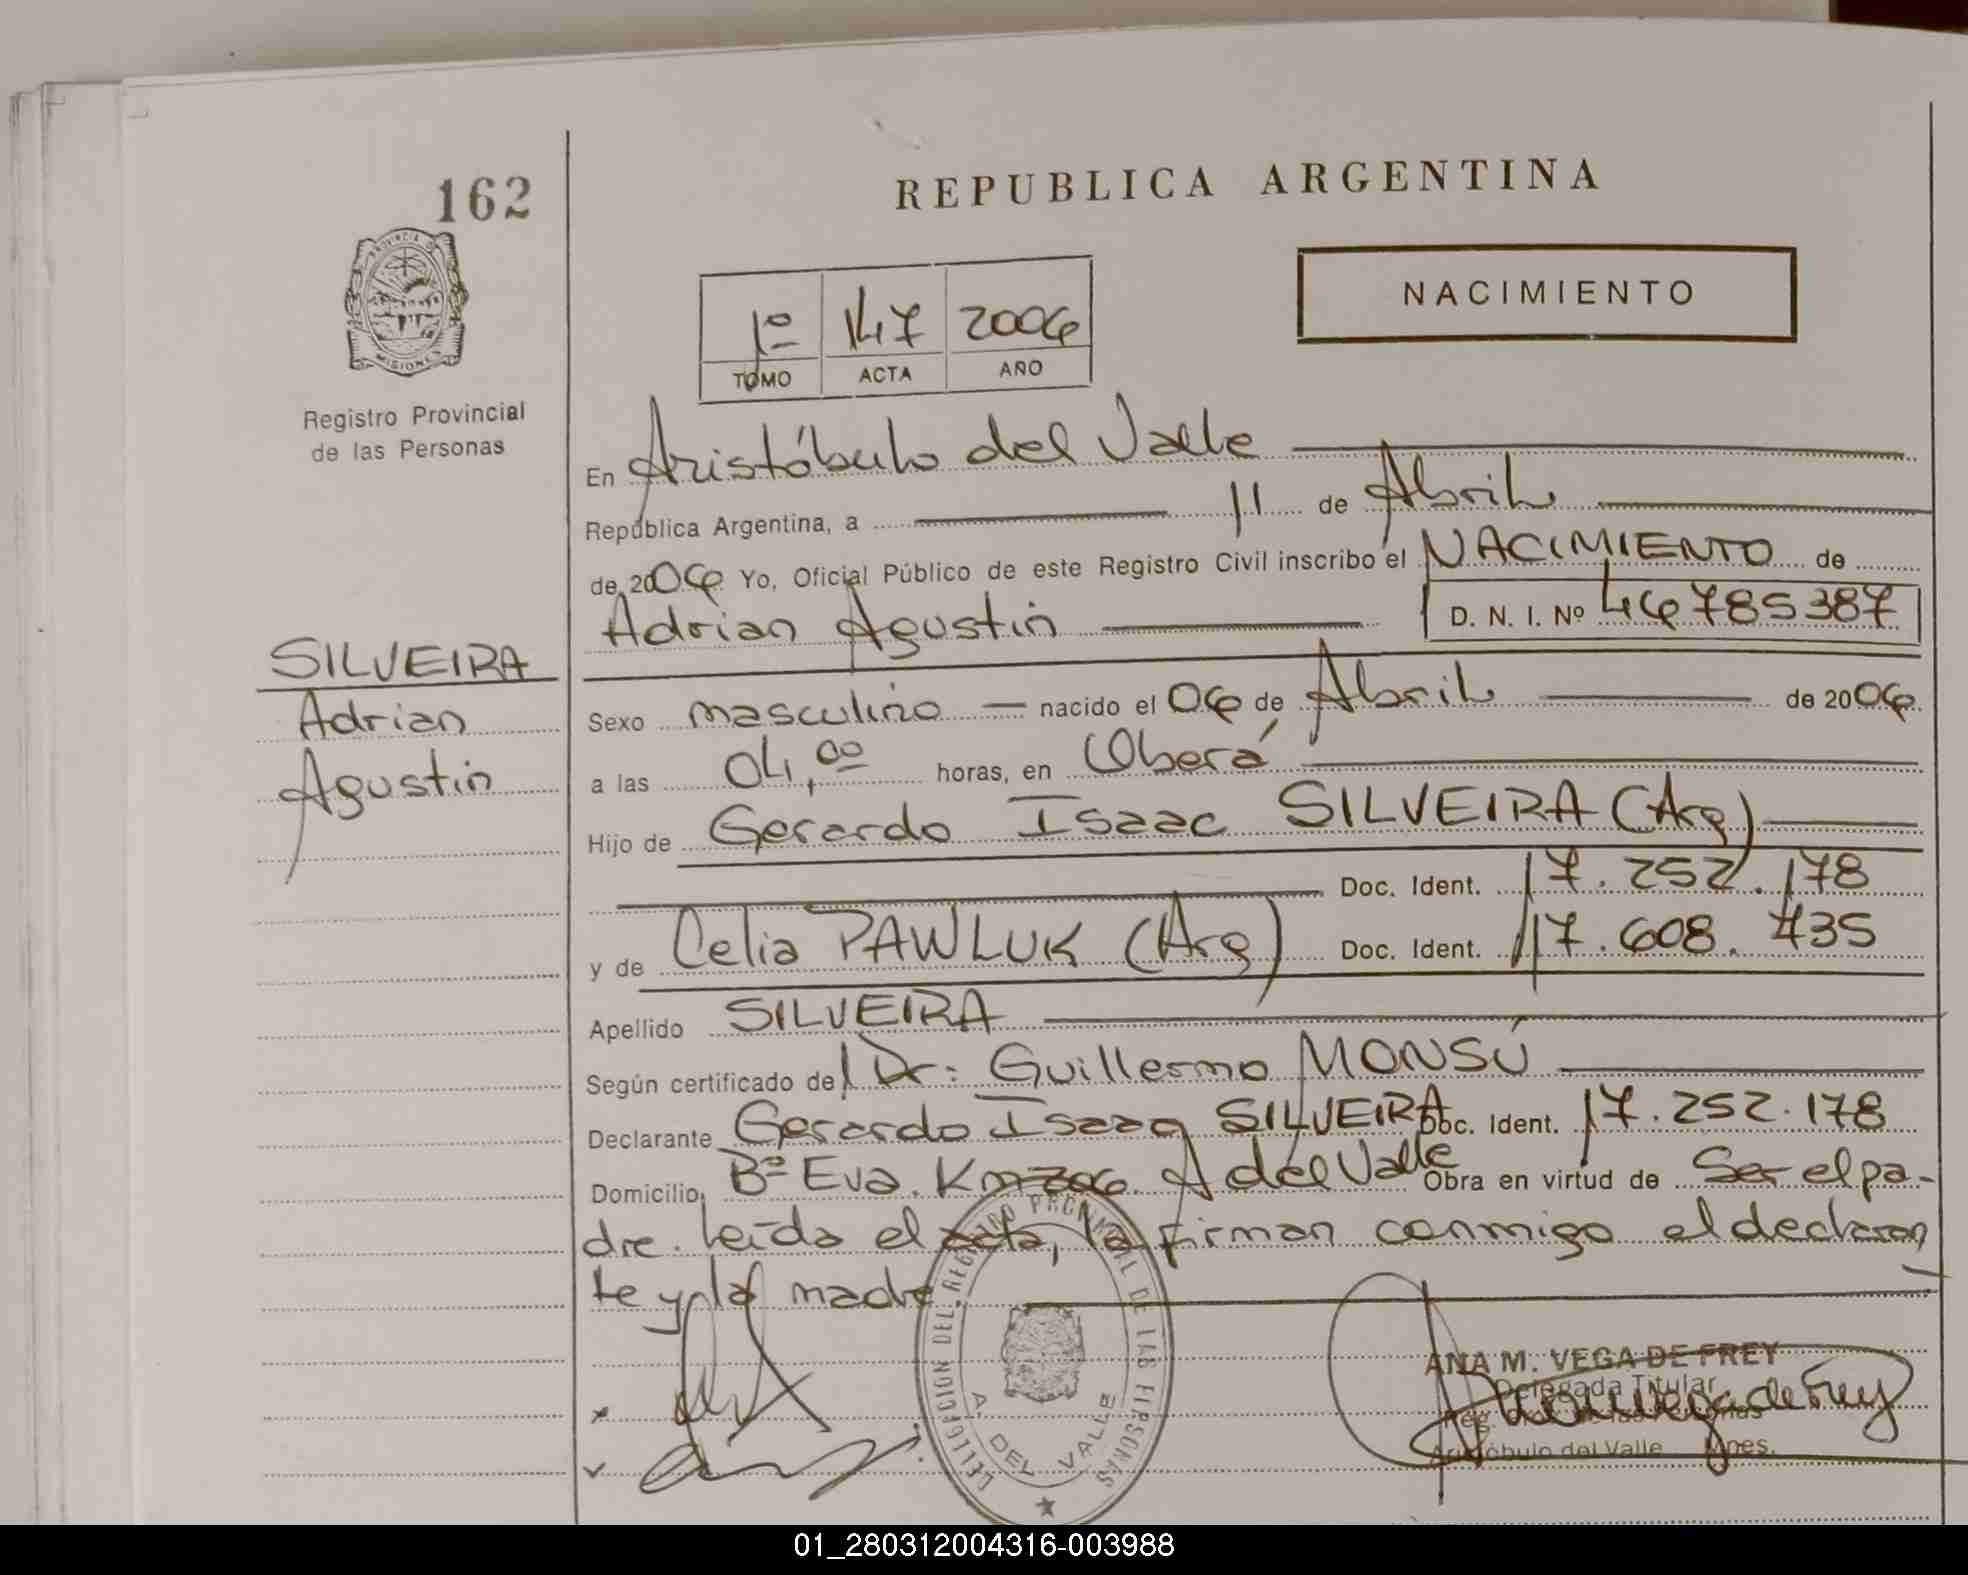 162
PROVINCIA DE
MISIONES
Registro Provincial
de las Personas
SILVEIRA
Adrian
Agustin
REPUBLICA ARGENTINA
NACIMIENTO
1º 147 2006
TOMO ACTA AÑO
En Aristóbulo del Valle
República Argentina, a 11 de Abril
de 2006 Yo, Oficial Público de este Registro Civil inscribo el NACIMIENTO de
Adrian Agustin D. N. I. Nº 46785387
Sexo masculino nacido el 06 de Abril de 2006
a las 04,00 horas, en Oberá
Hijo de Gerardo Isaac SILVEIRA (Arg)
Doc. Ident. 17.252.178
y de Celia PAWLUK (Arg) Doc. Ident. 17.608.735
Apellido SILVEIRA
Según certificado del Dr: Guillermo MONSÚ
Declarante Gerardo Isaac SILVEIRA Doc. Ident. 17.252.178
Domicilio Bº Eva. Km A del Valle Obra en virtud de Ser el pa-
dre. Leída el acta, la firman conmigo el declaran
te y la madre.
DEL REGISTRO PROVINCIAL DE LAS PERSONAS
A. DEL VALLE
ANA M. VEGA DE FREY
Delegada Titular
Reg. de las Personas
Aristóbulo del Valle Mnes.
01_280312004316-003988